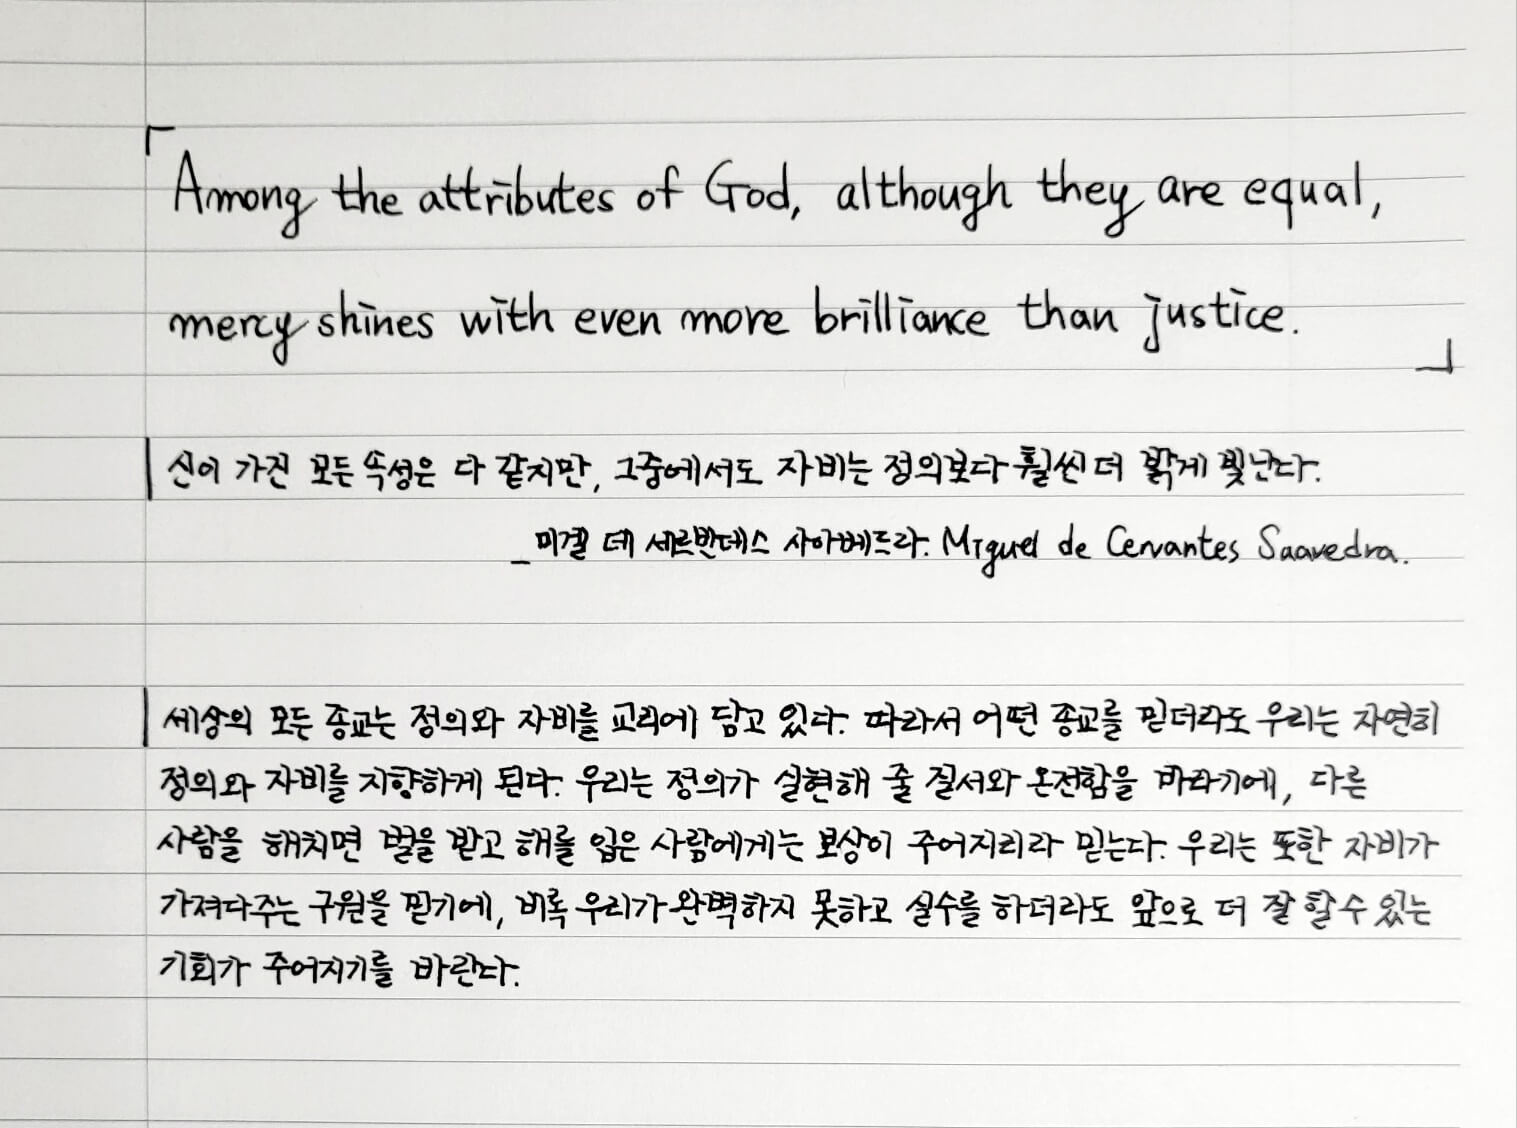 「Among the attributes of God, although they are equal,
mercy shines with even more brilliance than justice.」
신이 가진 모든 속성은 다 같지만, 그중에서도 자비는 정의보다 훨씬 더 밝게 빛난다.
_미겔 데 세르반데스 사아베드라. Miguel de Cervantes Saavedra.
세상의 모든 종교는 정의와 자비를 교리에 담고 있다. 따라서 어떤 종교를 믿더라도 우리는 자연히
정의와 자비를 지향하게 된다. 우리는 정의가 실현해 줄 질서와 온전함을 바라기에, 다른
사람을 해치면 벌을 받고 해를 입은 사람에게는 보상이 주어지리라 믿는다. 우리는 또한 자비가
가져다주는 구원을 믿기에, 비록 우리가 완벽하지 못하고 실수를 하더라도 앞으로 더 잘 할 수 있는
기회가 주어지기를 바란다.